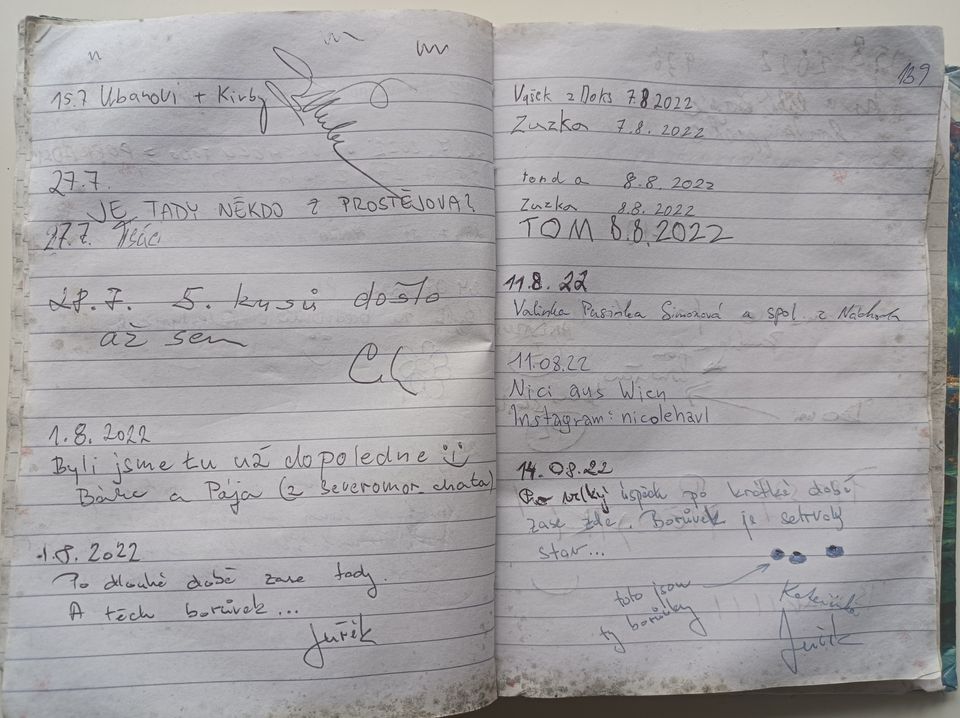 15.7 Urbanovi + Kirby
27.7.
JE TADY NĚKDO Z PROSTĚJOVA?
27.7.
28.7. 5. kusů došlo
až sem
1.8.2022
Byli jsme tu už dopoledne
Báře a Pája (z severomor. chata)
1.8.2022
Po dlouhé době zase tady.
A těch borůvek...
Juřík
139
Vašek z Doks 7.8.2022
Zuzka 7.8.2022
tonda 8.8.2022
Zuzka 8.8.2022
TOM 8.8.2022
11.8.22
Valinka Pusinka Simonová a spol. z Náchoda
11.08.22
Nici aus Wien
Instagram: nicolehavl
14.08.22
velký úspěch po krátké době
zase zde. Borůvek je setrvalý
stav...
toto jsou
ty borůvky
Juřík